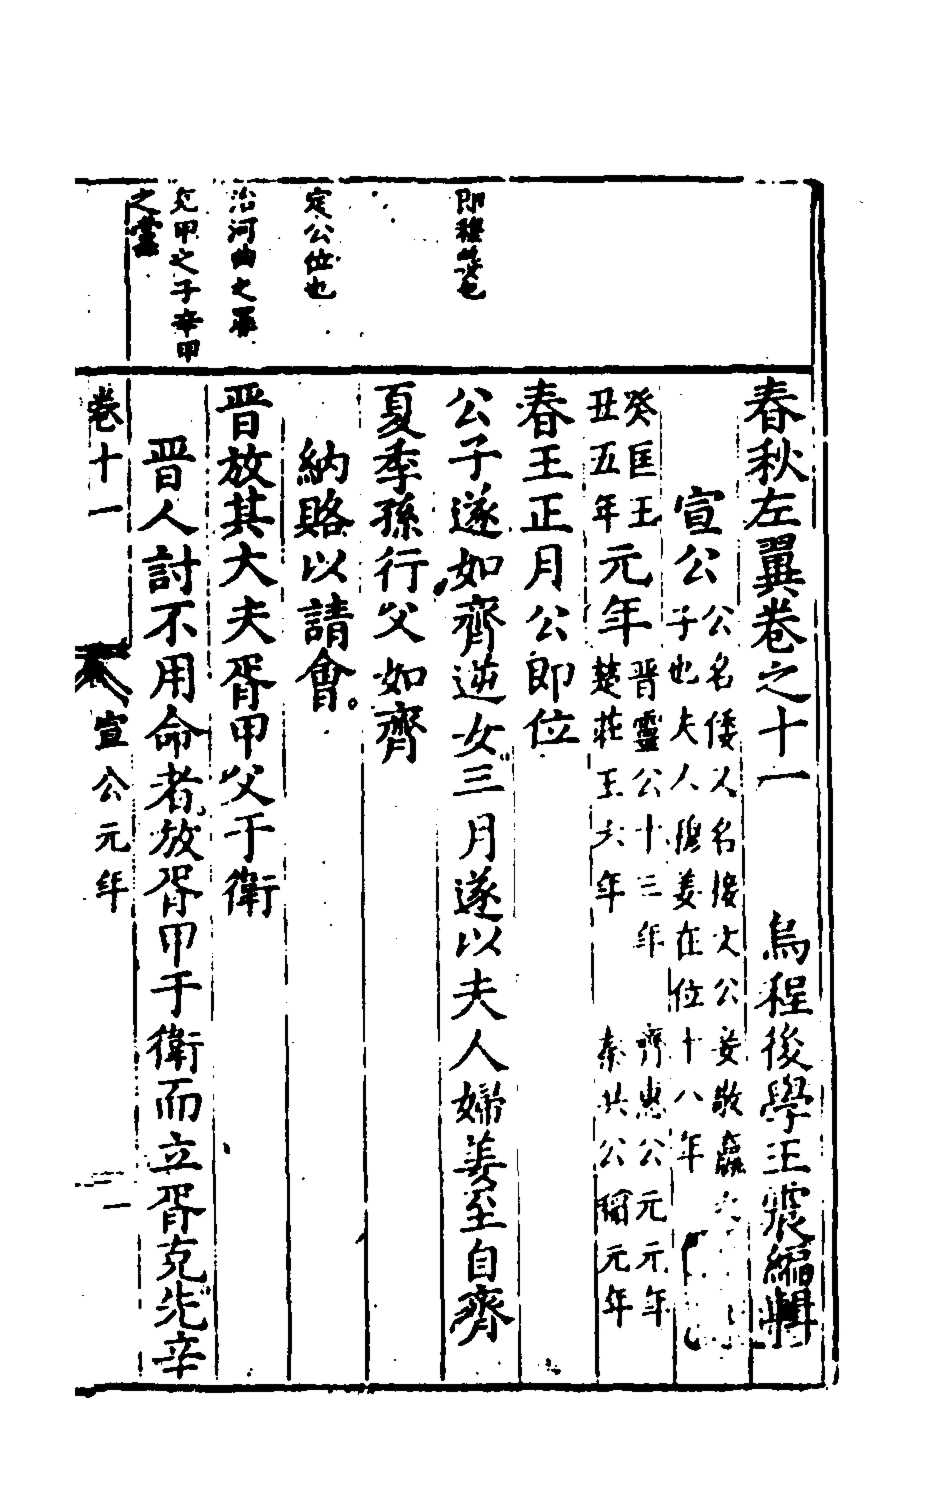 春秋左翼卷之十一　烏程後學王震編輯
宣公
公名倭人名接文公妾敬嬴之
子也夫人穆姜在位十八年
癸匡王
丑五年
元年
晉靈公十三年　齊惠公元元年
楚莊王六年　秦共公稻元年
春王正月公即位
公子遂如齊逆女三月遂以夫人婦姜至自齊
即穆姜也
夏季孫行父如齊
納賂以請會
定公位也
晉放其大夫胥甲父于衛
治河曲之罪
晉人討不用命者放胥甲于衛而立胥克先辛
克甲之子辛甲
之黨
卷十一
宣公元年
一